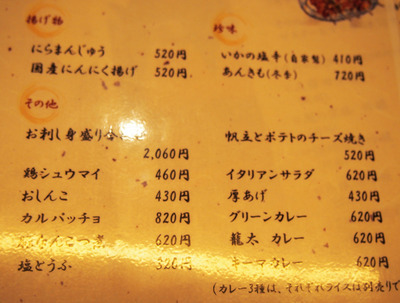 揚げ物
にらまんじゅう 520円
国産にんにく揚げ 520円
その他
お刺し身盛り合
2,060円
鶏シュウマイ 460円
おしんこ 430円
カルパッチョ 820円
こつ煮 620円
塩とうふ 320円
珍味
いかの塩辛(自家製) 410円
あんきも(冬季) 720円
帆立とポテトのチーズ焼き
520円
イタリアンサラダ 620円
厚あげ 430円
グリーンカレー 620円
龍太 カレー 620円
キーマカレー 620円
(カレー3種は、それぞれライスは別売りで